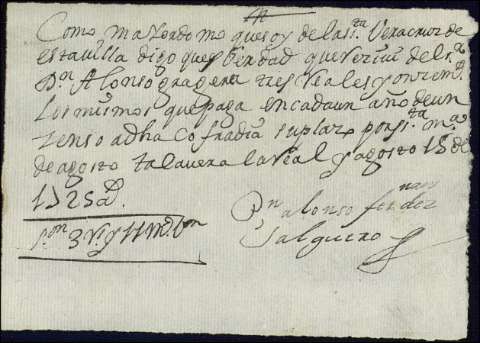 Como mayordomo que soy de la sta Veracruz de
esta villa digo ques berdad que rerciui del sr
Dn Alonso gragera tres Reales y onze ms
los mismos que paga en cada un año de un
zenso a dha Cofradia su plazo por sta ma
de agosto talauera la real y agosto 15 de
1725 as
Dn alonso fernan
dez
Salguero
son 3 rs y 11 ms bon